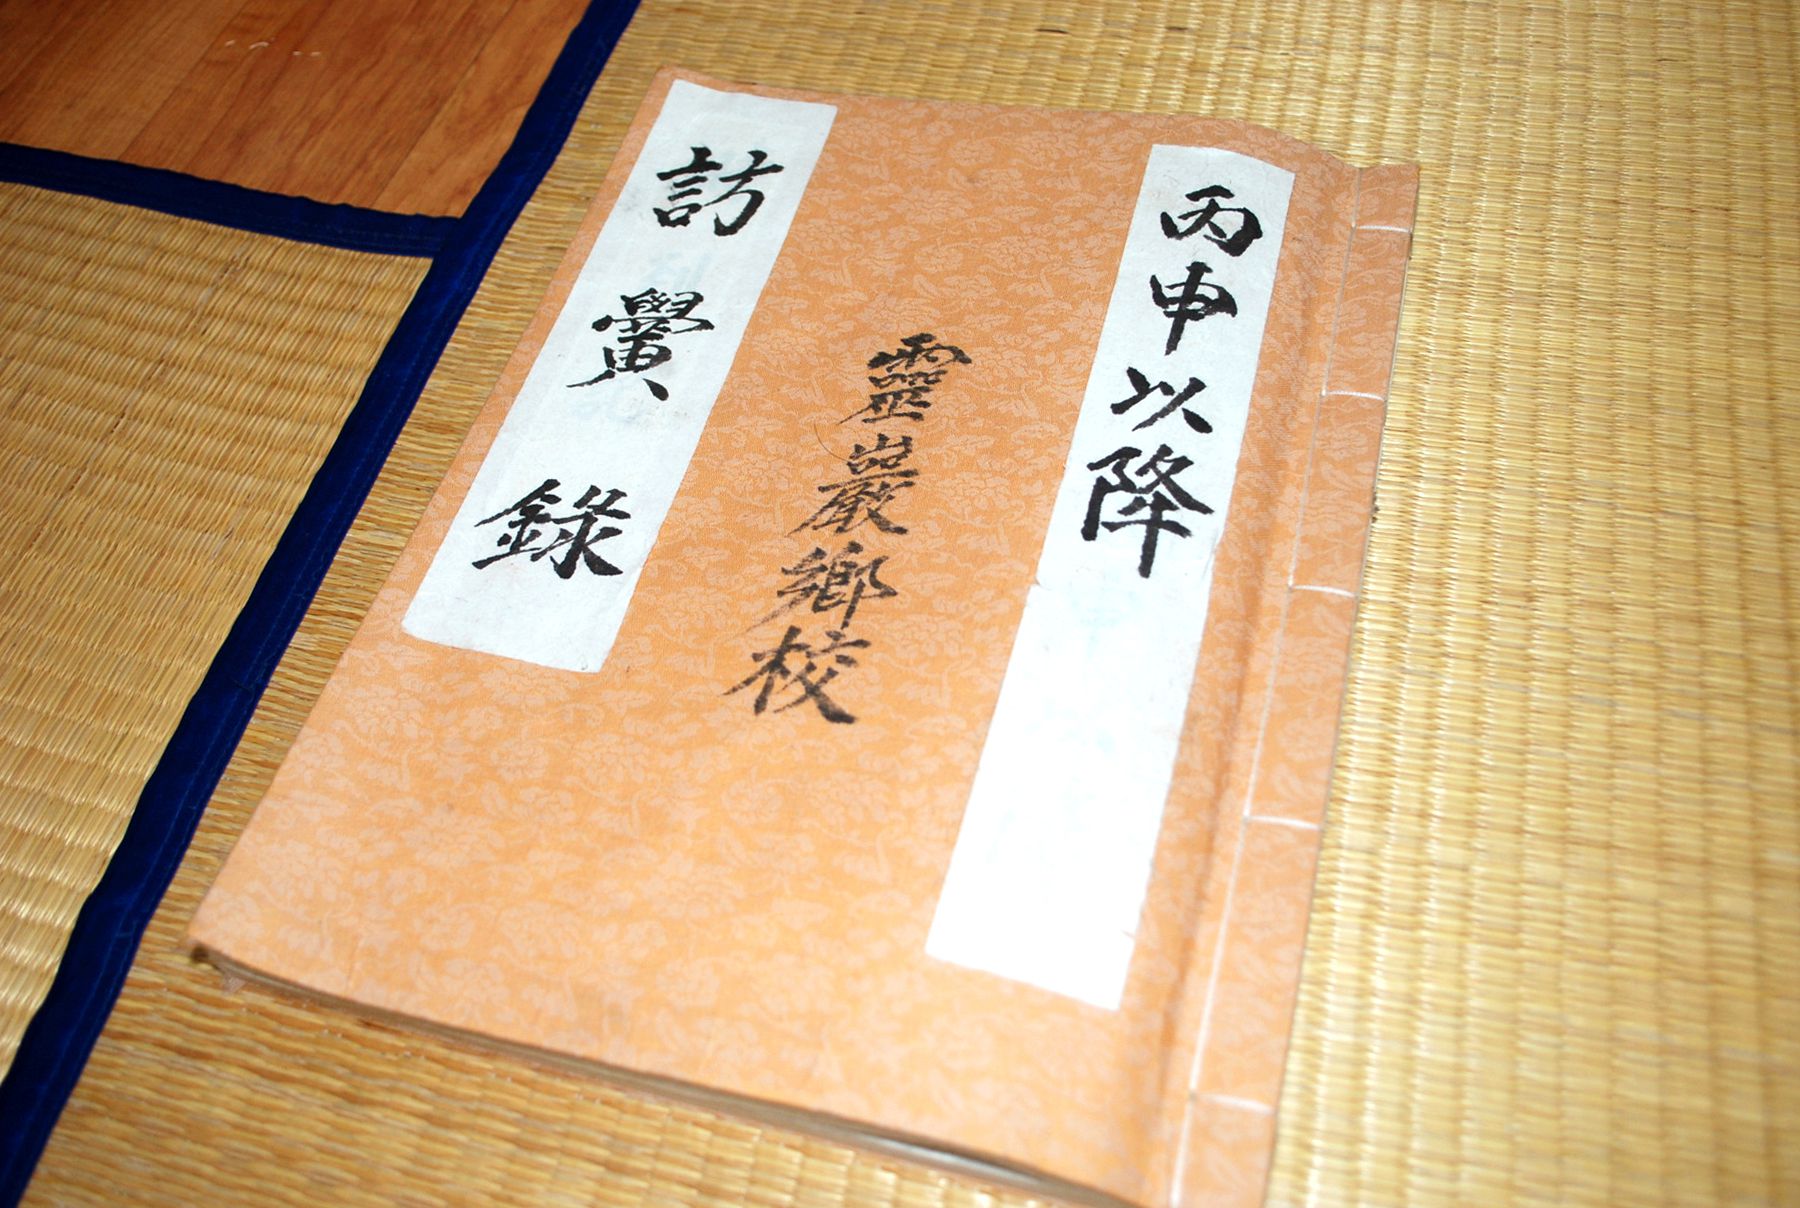 丙申以降
靈巖鄕校
訪黌錄